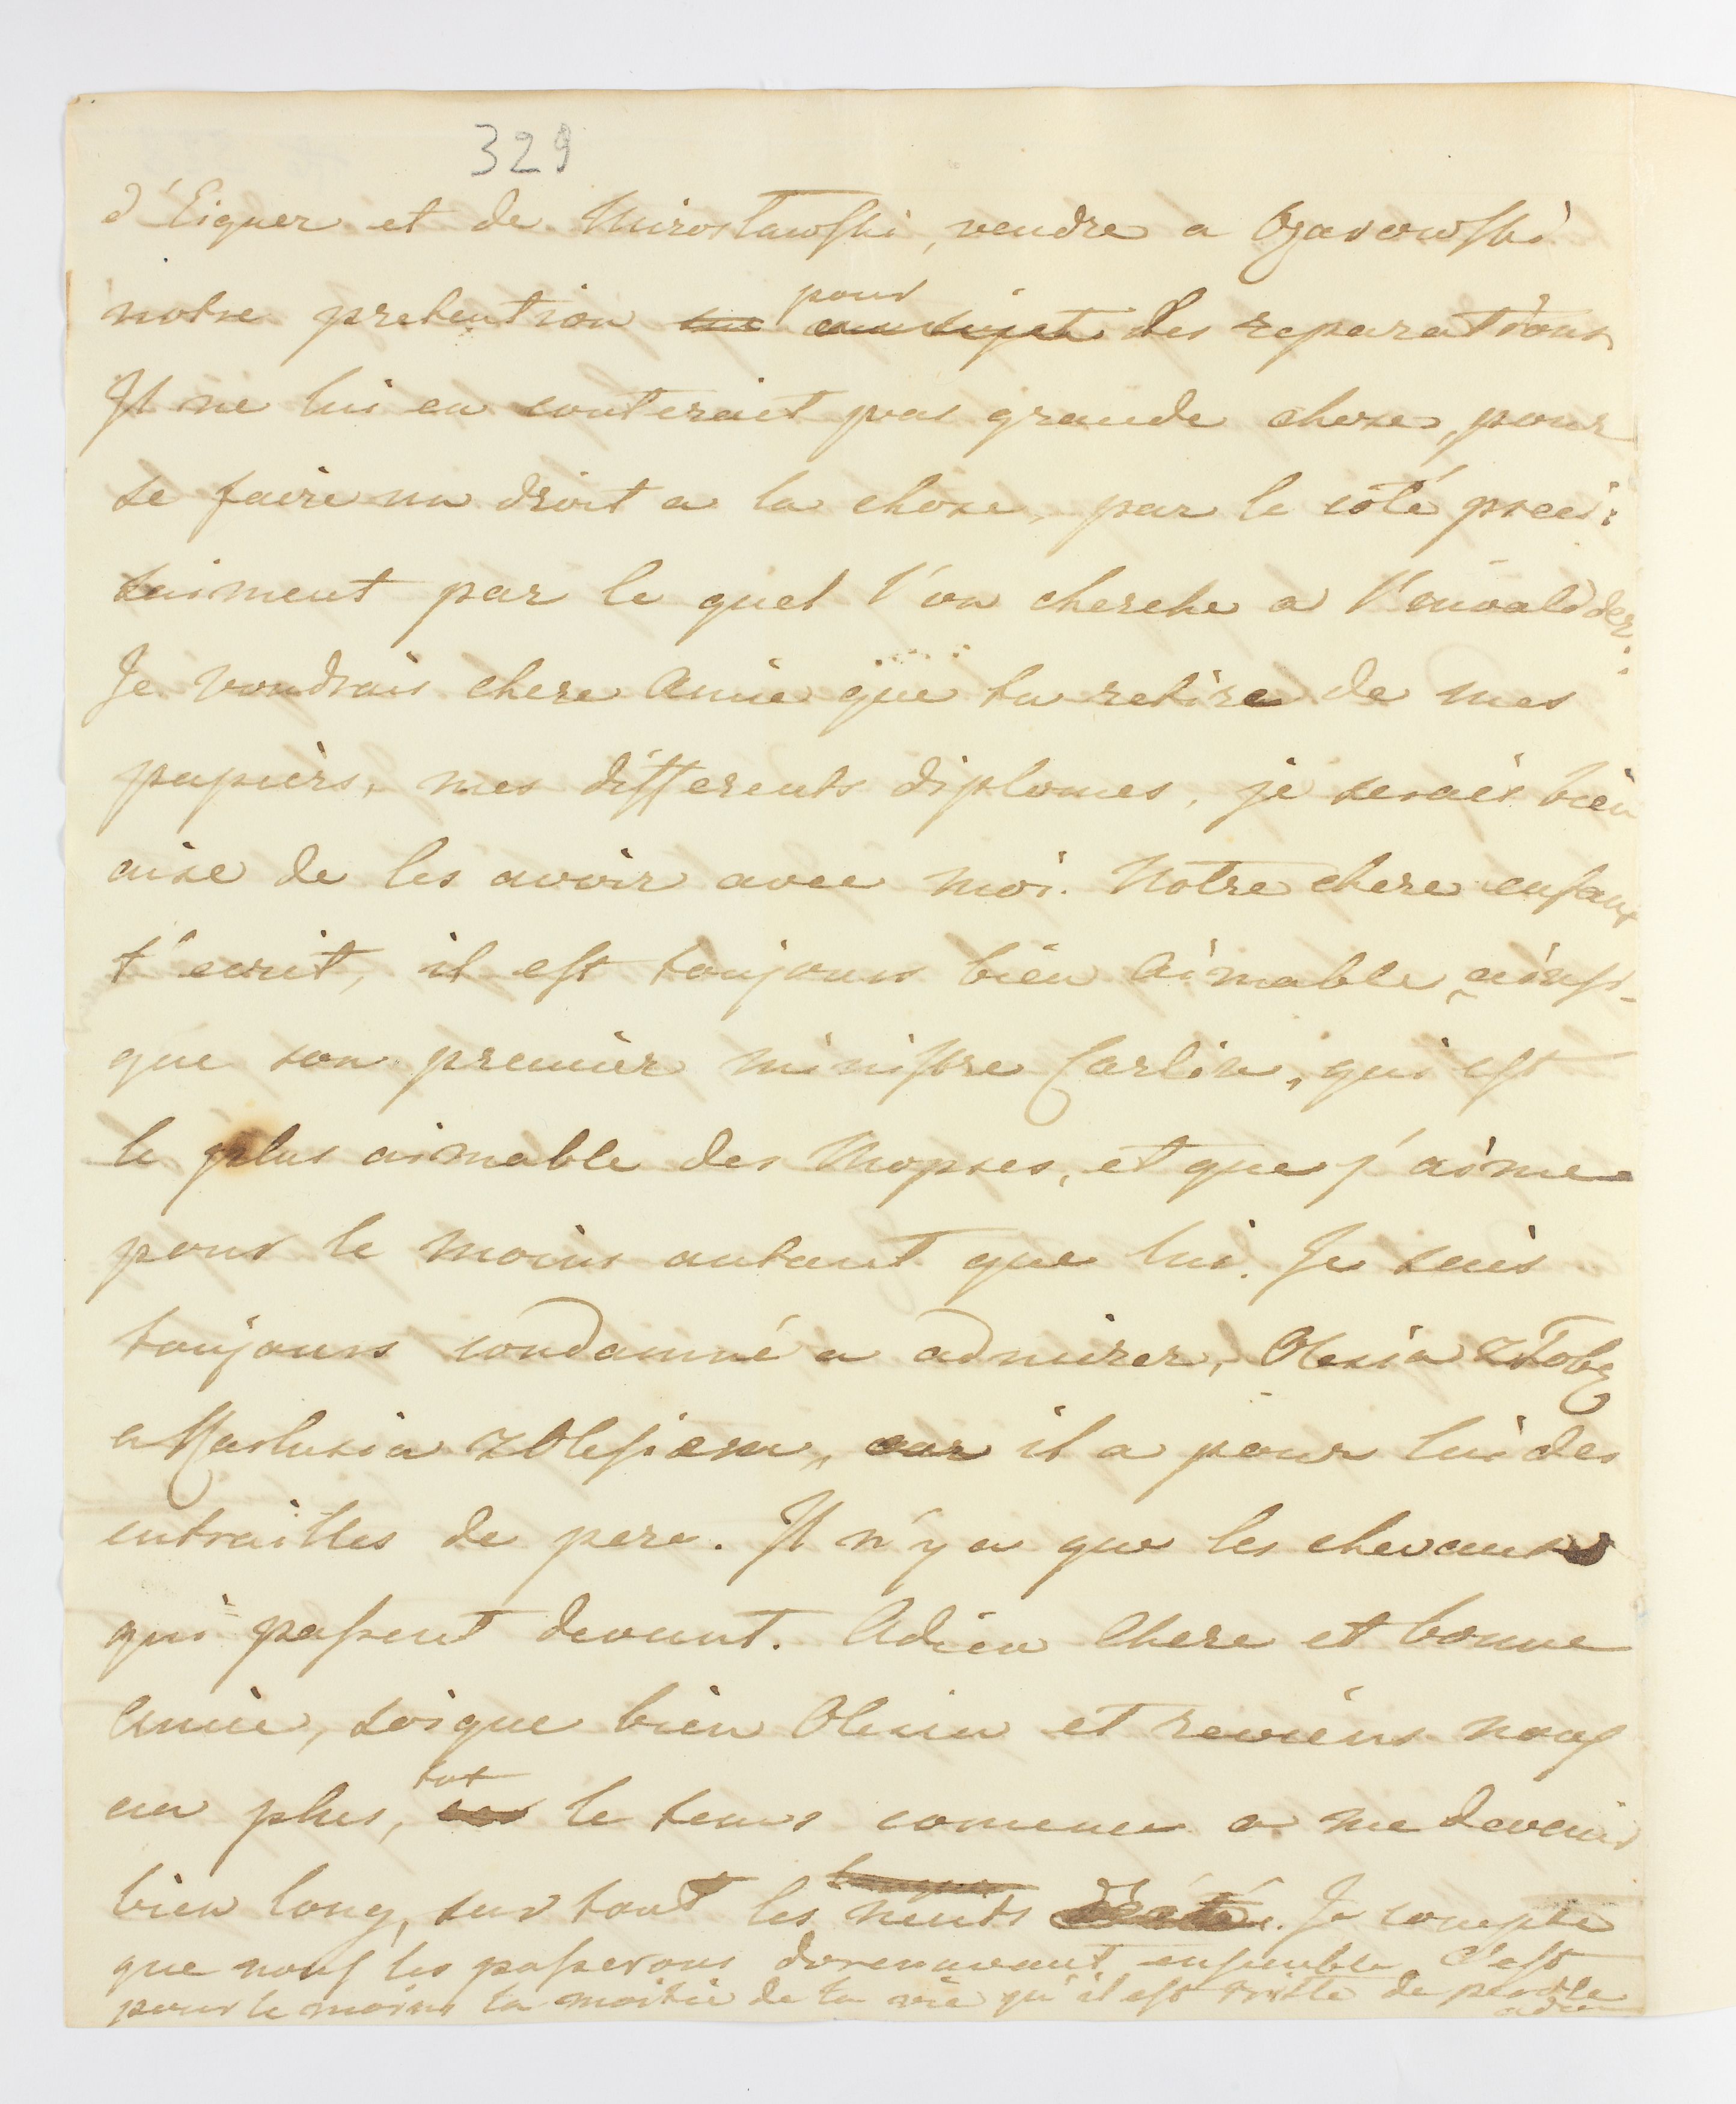 329
d'Eigner et de Mirosławski, vendre a Ożarowski
notre pretention sur au sujet pour des reparations
Il ne lui en couterait pas grande chose, pour
se faire un droit a la chose, par le coté preci:
saiment par le quel l'on cherche a l'envalider.
Je voudrais chere Amie que tu retire de mes
papiers, mes differents diplomes, je serais bien
aise de les avoir avec moi. Notre chere enfant
t'ecrit, il est toujours bien aimable, ainsi
que son premier ministre Carlin, qui est
le plus aimable des Mopses, et que j'aime
pour le moins autant que lui. Je suis
toujours condamné a admirer, Olesia
a Karlusia z Olesiem, car il a pour lui des
entrailles de pere. Il n'y a que les chevaux
qui passent devant. Adieu Chere et bonne
Amie, soigne bien Olesia et reviens nous
au plus, tot le tems comence a me devenir
bien long, sur tout les nuits. Je compte
que nous les passerons dorenavant ensemble C'est
pour le moins la moitié de la vie qu'il est triste de perdre
adieu